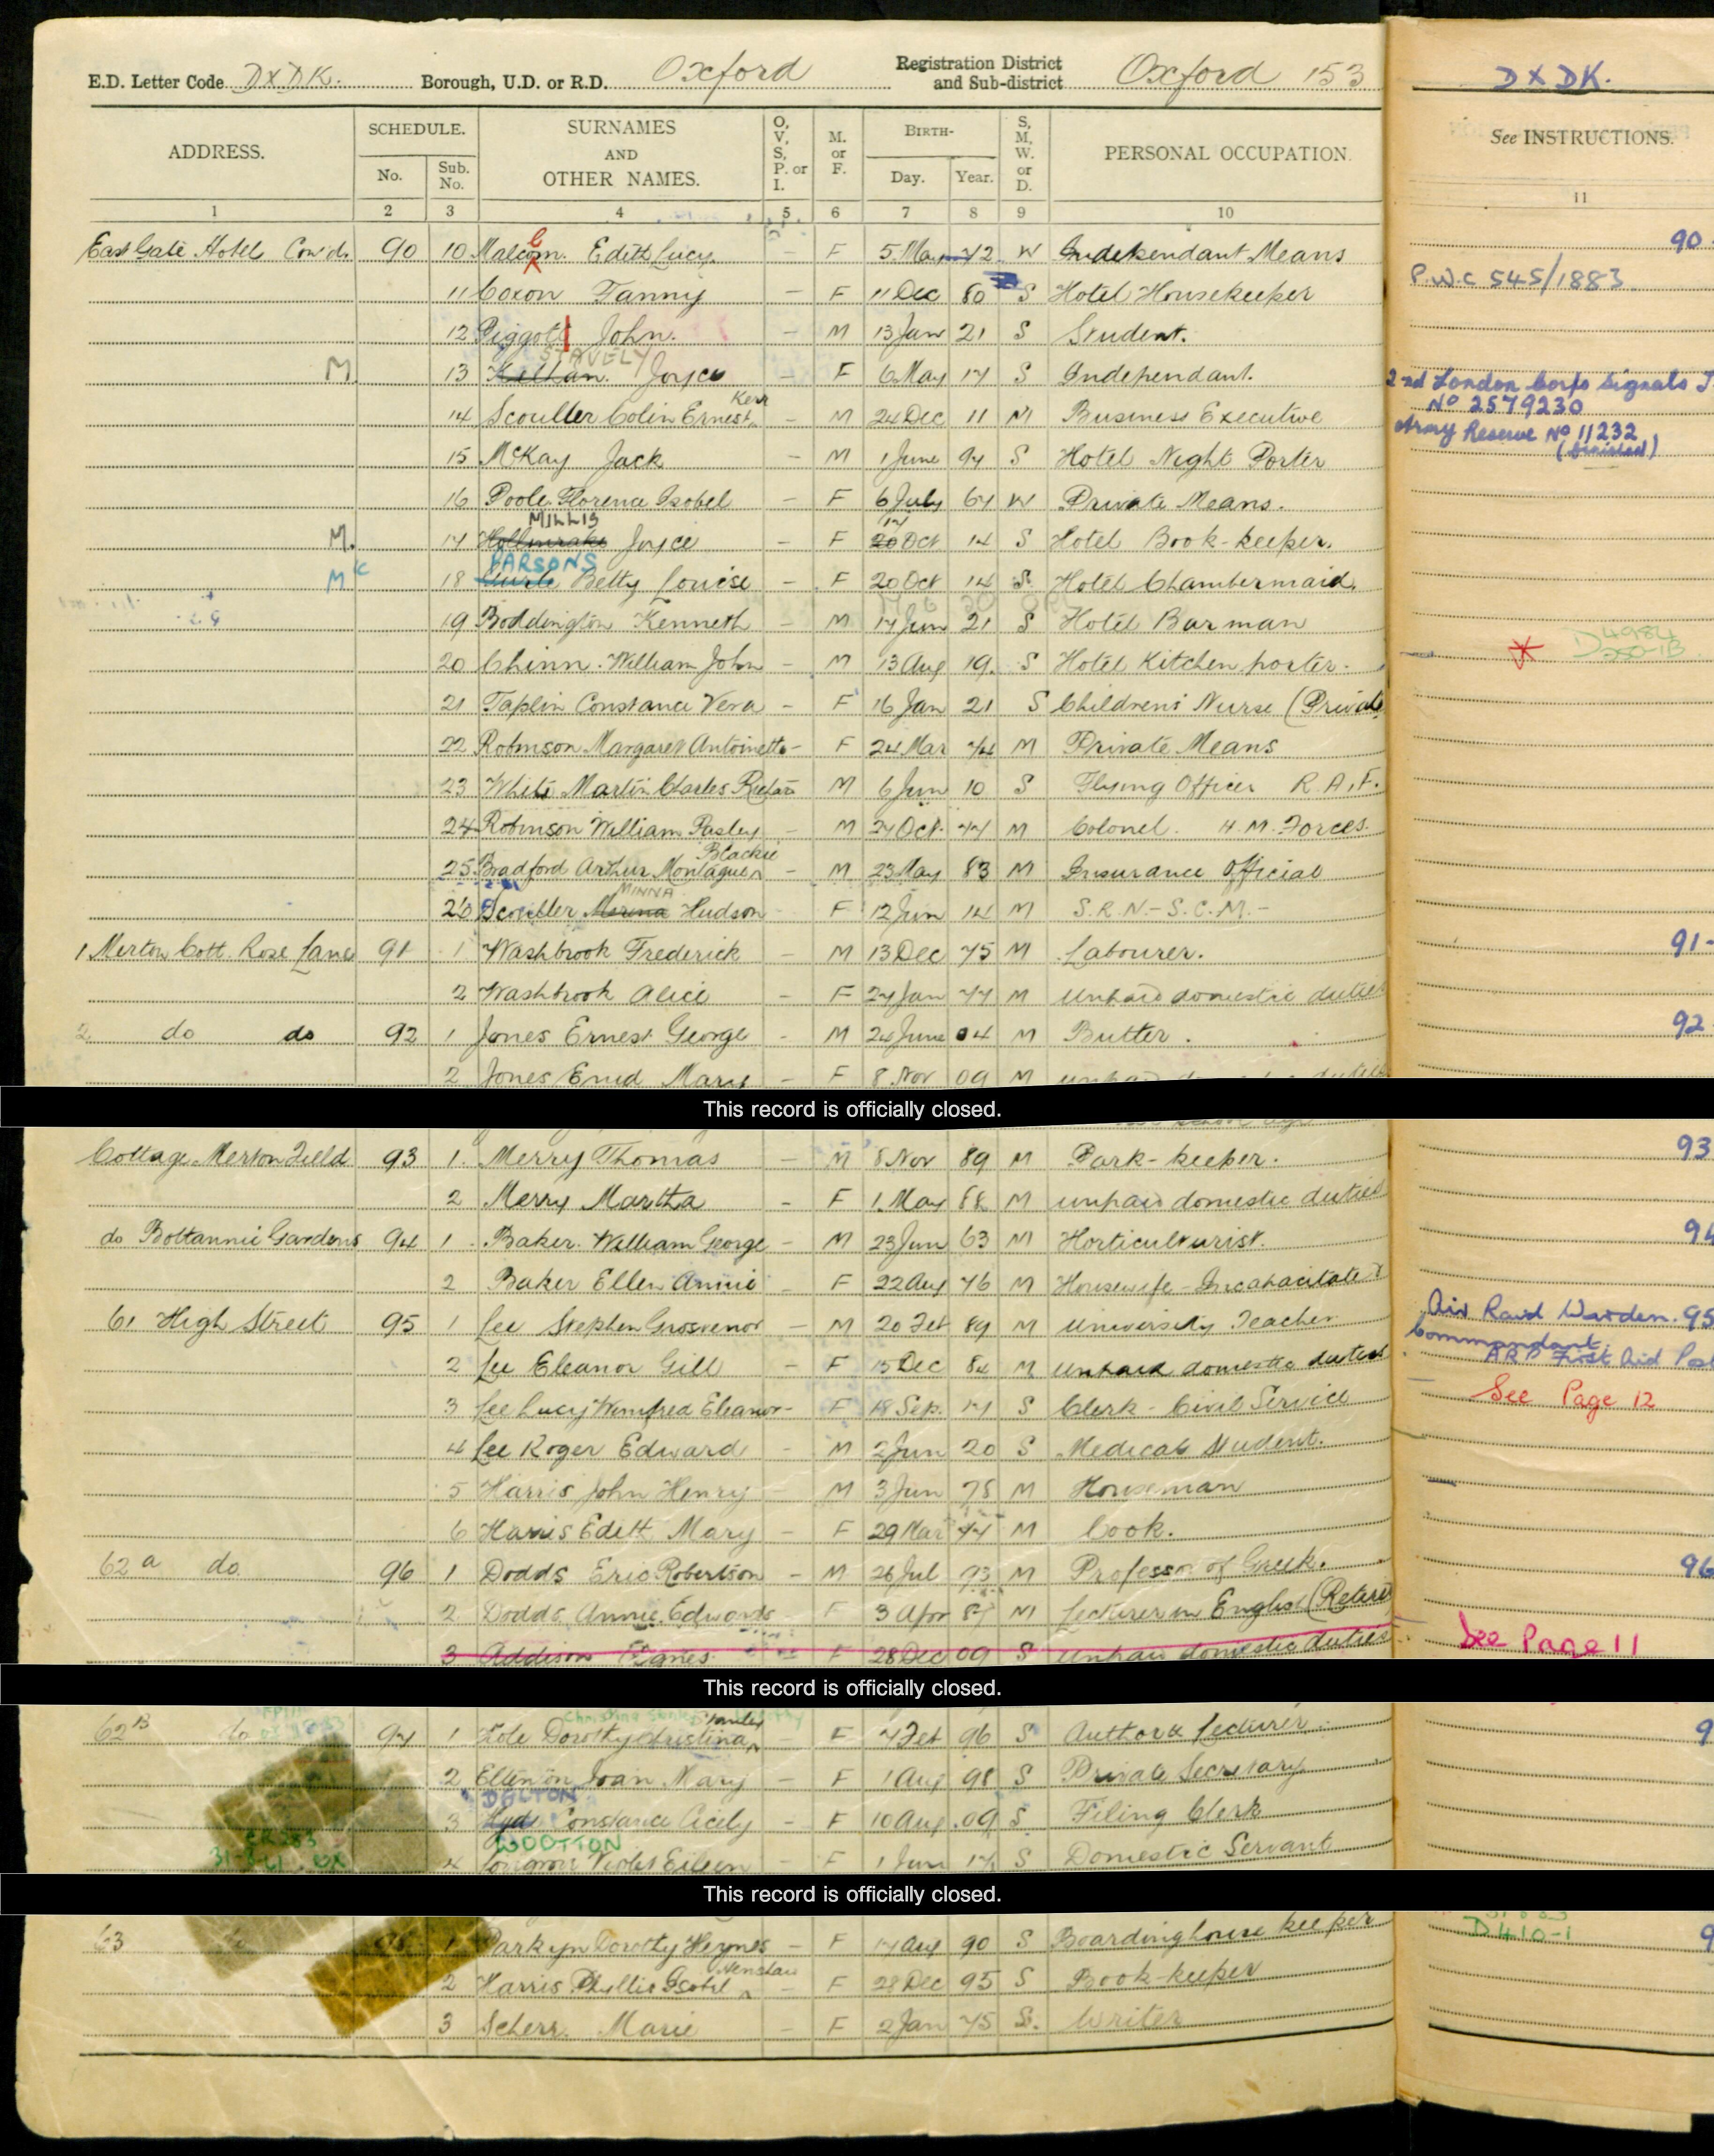 E.D. Letter Code DXDK. Borough, U.D. or R.D. Oxford Registration District and Sub-district Oxford 153 DXDK.
ADDRESS. SCHEDULE. No. Sub. No. SURNAMES AND OTHER NAMES. O, V, S, P. or I. M. or F. BIRTH- Day. Year. S, M, W. or D. PERSONAL OCCUPATION. See INSTRUCTIONS.
1 2 3 4 5 6 7 8 9 10 11
East Gate Hotel Con'd. 90 10 Edith Lucy. - F 5 May 72 W Independant Means 90
11 Coxon Fanny - F 11 Dec 80 S Hotel Housekeeper P.W.C 545/1883
12 Piggott John. - M 13 Jan 21 S Student.
M 13 STAVELY Joyce - F 6 May 17 S Independant. 2nd London Corps Signals
14 Scouller Colin Ernest Kerr - M 24 Dec 11 M Business Executive No 2579230
Army Reserve No 11232
15 McKay Jack - M 1 June 94 S Hotel Night Porter
16 Poole Florence Isobel - F 6 July 67 W Private Means.
M. 17 MILLIS Joyce - F Oct 14 S Hotel Book-keeper.
M C 18 PARSONS Betty Louise - F 20 Oct 14 S. Hotel Chambermaid
19 Boddington Kenneth - M 17 Jun 21 S Hotel Barman
20 Chinn. William John - M 13 Aug 19. S Hotel Kitchen porter.
21 Taplin Constance Vera - F 16 Jan 21 S Childrens Nurse (Private
22 Robinson Margaret Antoinette - F 24 Mar 74 M Private Means
23 White Martin Charles M 6 Jun 10 S Flying Officer R.A.F.
24 Robinson William Pasley - M 27 Oct 77 M Colonel. H.M. Forces.
25 Bradford Arthur Montague Blackie - M 23 May 83 M Insurance Official
26 Scouller MINNA Hudson - F 12 Jun 14 M S.R.N. - S.C.M. -
1 Merton Cott. Rose Lane 91 1 Washbrook Frederick M 13 Dec 75 M Labourer. 91-
2 Washbrook Alice - F 27 Jan 77 M unpaid domestic duties
2 do do 92 1 Jones Ernest George - M 24 June 04 M Butler. 92
2 Jones Enid Mary - F 8 Nov 09 M unpaid domestic duties
This record is officially closed.
Cottage Merton Field 93 1. Merry Thomas - M 8 Nov 89 M Park-keeper. 93
2 Merry Martha - F 1 May 88 M unpaid domestic duties
do Bottannic Gardens 94 1 Baker William George - M 23 Jun 63 M Horticulturist. 94
2 Baker Ellen Annie - F 22 Aug 76 M Housewife - Incapacitated
61 High Street 95 1 Lee Stephen Grosvenor - M 20 Feb 89 M University Teacher Air Raid Warden. 95
2 Lee Eleanor Gill - F 15 Dec 84 M unpaid domestic duties Commandant ARP First Aid Post
3 Lee Lucy Winifred Eleanor - F 18 Sep. 17 S Clerk - Civil Service See Page 12
4 Lee Roger Edward - M 2 Jun 20 S Medical Student.
5 Harris John Henry - M 3 Jun 75 M Houseman
6 Harris Edith Mary - F 29 Mar 77 M Cook.
62a do. 96 1 Dodds Eric Robertson - M 26 Jul 93 M Professor of Greek. 96
2 Dodds Annie Edwards F 3 Apr 87 M Lecturer in English (Retired
3 Addison Agnes F 28 Dec 09 S unpaid domestic duties See Page 11
This record is officially closed.
62B do 97 1 Dorothy Christina Stanley - F 7 Feb 96 S Author & Lecturer. 9
2 Joan Mary - F 1 Aug 98 S Private Secretary
3 DALTON Constance Cicely - F 10 Aug 09 S Filing Clerk
4 WOOTTON Violet Eileen - F 1 Jun 17 S Domestic Servant
This record is officially closed.
63 1 Parkyn Dorothy Heynes - F 17 Aug 90 S Boardinghouse keeper D410-1 9
2 Harris Phyllis Isobel Henshaw F 28 Dec 95 S Book-keeper
3 Scherr. Marie - F 2 Jan 75 S. Writer